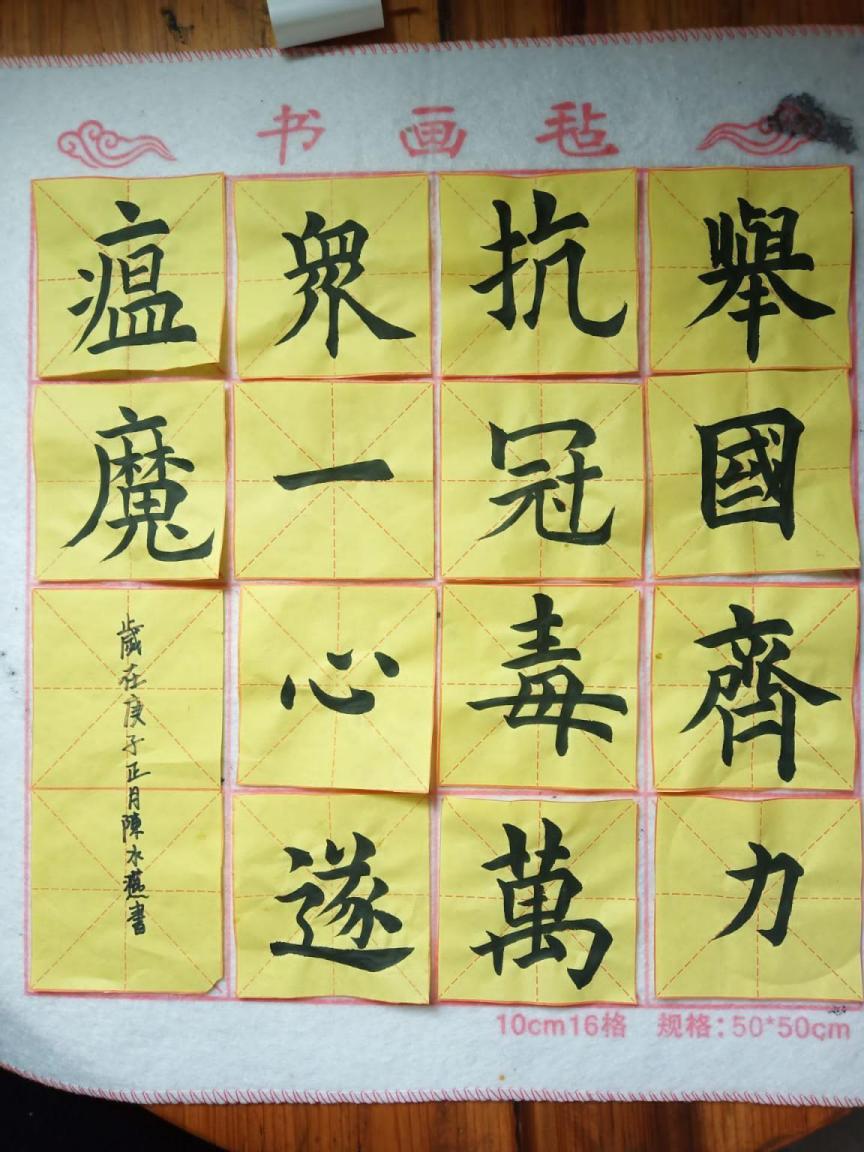 书画毡
舉國齊力
抗冠毒萬
衆一心遂
瘟魔
歲在庚子正月陳水燕書
10cm16格 规格:50*50cm